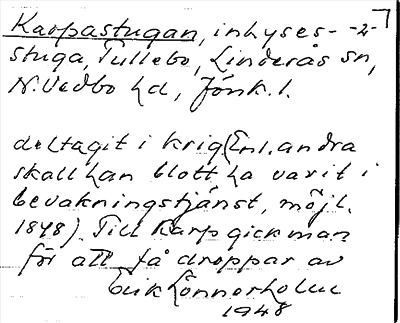 Karpastugan, inhyses- -2-
stuga, Tullebo, Linderås sn,
N. Vedbo hd, Jönk. l.
deltagit i krig (Enl. andra
skall han blott ha varit i
bevakningstjänst, möjl.
1848). Till Karp gick man
för att få droppar av
Erik Lönnerholm
1948